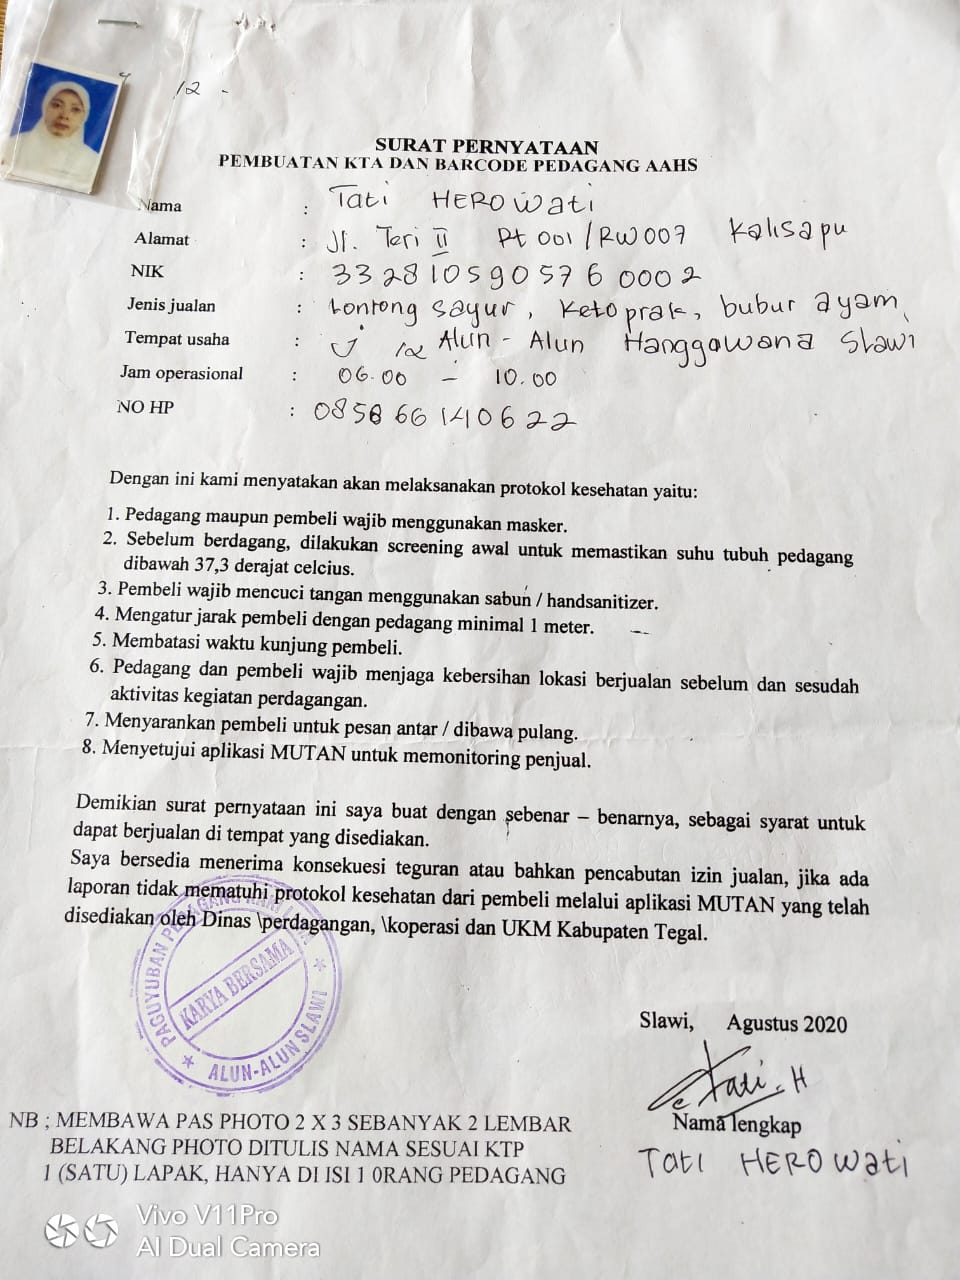 12 -
SURAT PERNYATAAN
PEMBUATAN KTA DAN BARCODE PEDAGANG AAHS
Nama : Tati HEROwati
Alamat : Jl. Teri II Rt 001/RW007 Kalisapu
NIK : 3328105905760002
Jenis jualan : Lontong sayur, Ketoprak, bubur ayam
Tempat usaha : Alun - Alun Hanggawana Slawi
Jam operasional : 06.00 - 10.00
NO HP : 085866140622
Dengan ini kami menyatakan akan melaksanakan protokol kesehatan yaitu:
1. Pedagang maupun pembeli wajib menggunakan masker.
2. Sebelum berdagang, dilakukan screening awal untuk memastikan suhu tubuh pedagang
dibawah 37,3 derajat celcius.
3. Pembeli wajib mencuci tangan menggunakan sabun / handsanitizer.
4. Mengatur jarak pembeli dengan pedagang minimal 1 meter.
5. Membatasi waktu kunjung pembeli.
6. Pedagang dan pembeli wajib menjaga kebersihan lokasi berjualan sebelum dan sesudah
aktivitas kegiatan perdagangan.
7. Menyarankan pembeli untuk pesan antar / dibawa pulang.
8. Menyetujui aplikasi MUTAN untuk memonitoring penjual.
Demikian surat pernyataan ini saya buat dengan sebenar – benarnya, sebagai syarat untuk
dapat berjualan di tempat yang disediakan.
Saya bersedia menerima konsekuesi teguran atau bahkan pencabutan izin jualan, jika ada
laporan tidak mematuhi protokol kesehatan dari pembeli melalui aplikasi MUTAN yang telah
disediakan oleh Dinas \perdagangan, \koperasi dan UKM Kabupaten Tegal.
PAGUYUBAN PEDAGANG
KARYA BERSAMA
ALUN-ALUN SLAWI
Slawi, Agustus 2020
Tati.H
Nama lengkap
Tati HEROwati
NB ; MEMBAWA PAS PHOTO 2 X 3 SEBANYAK 2 LEMBAR
BELAKANG PHOTO DITULIS NAMA SESUAI KTP
1 (SATU) LAPAK, HANYA DI ISI 1 0RANG PEDAGANG
Vivo V11Pro
AI Dual Camera